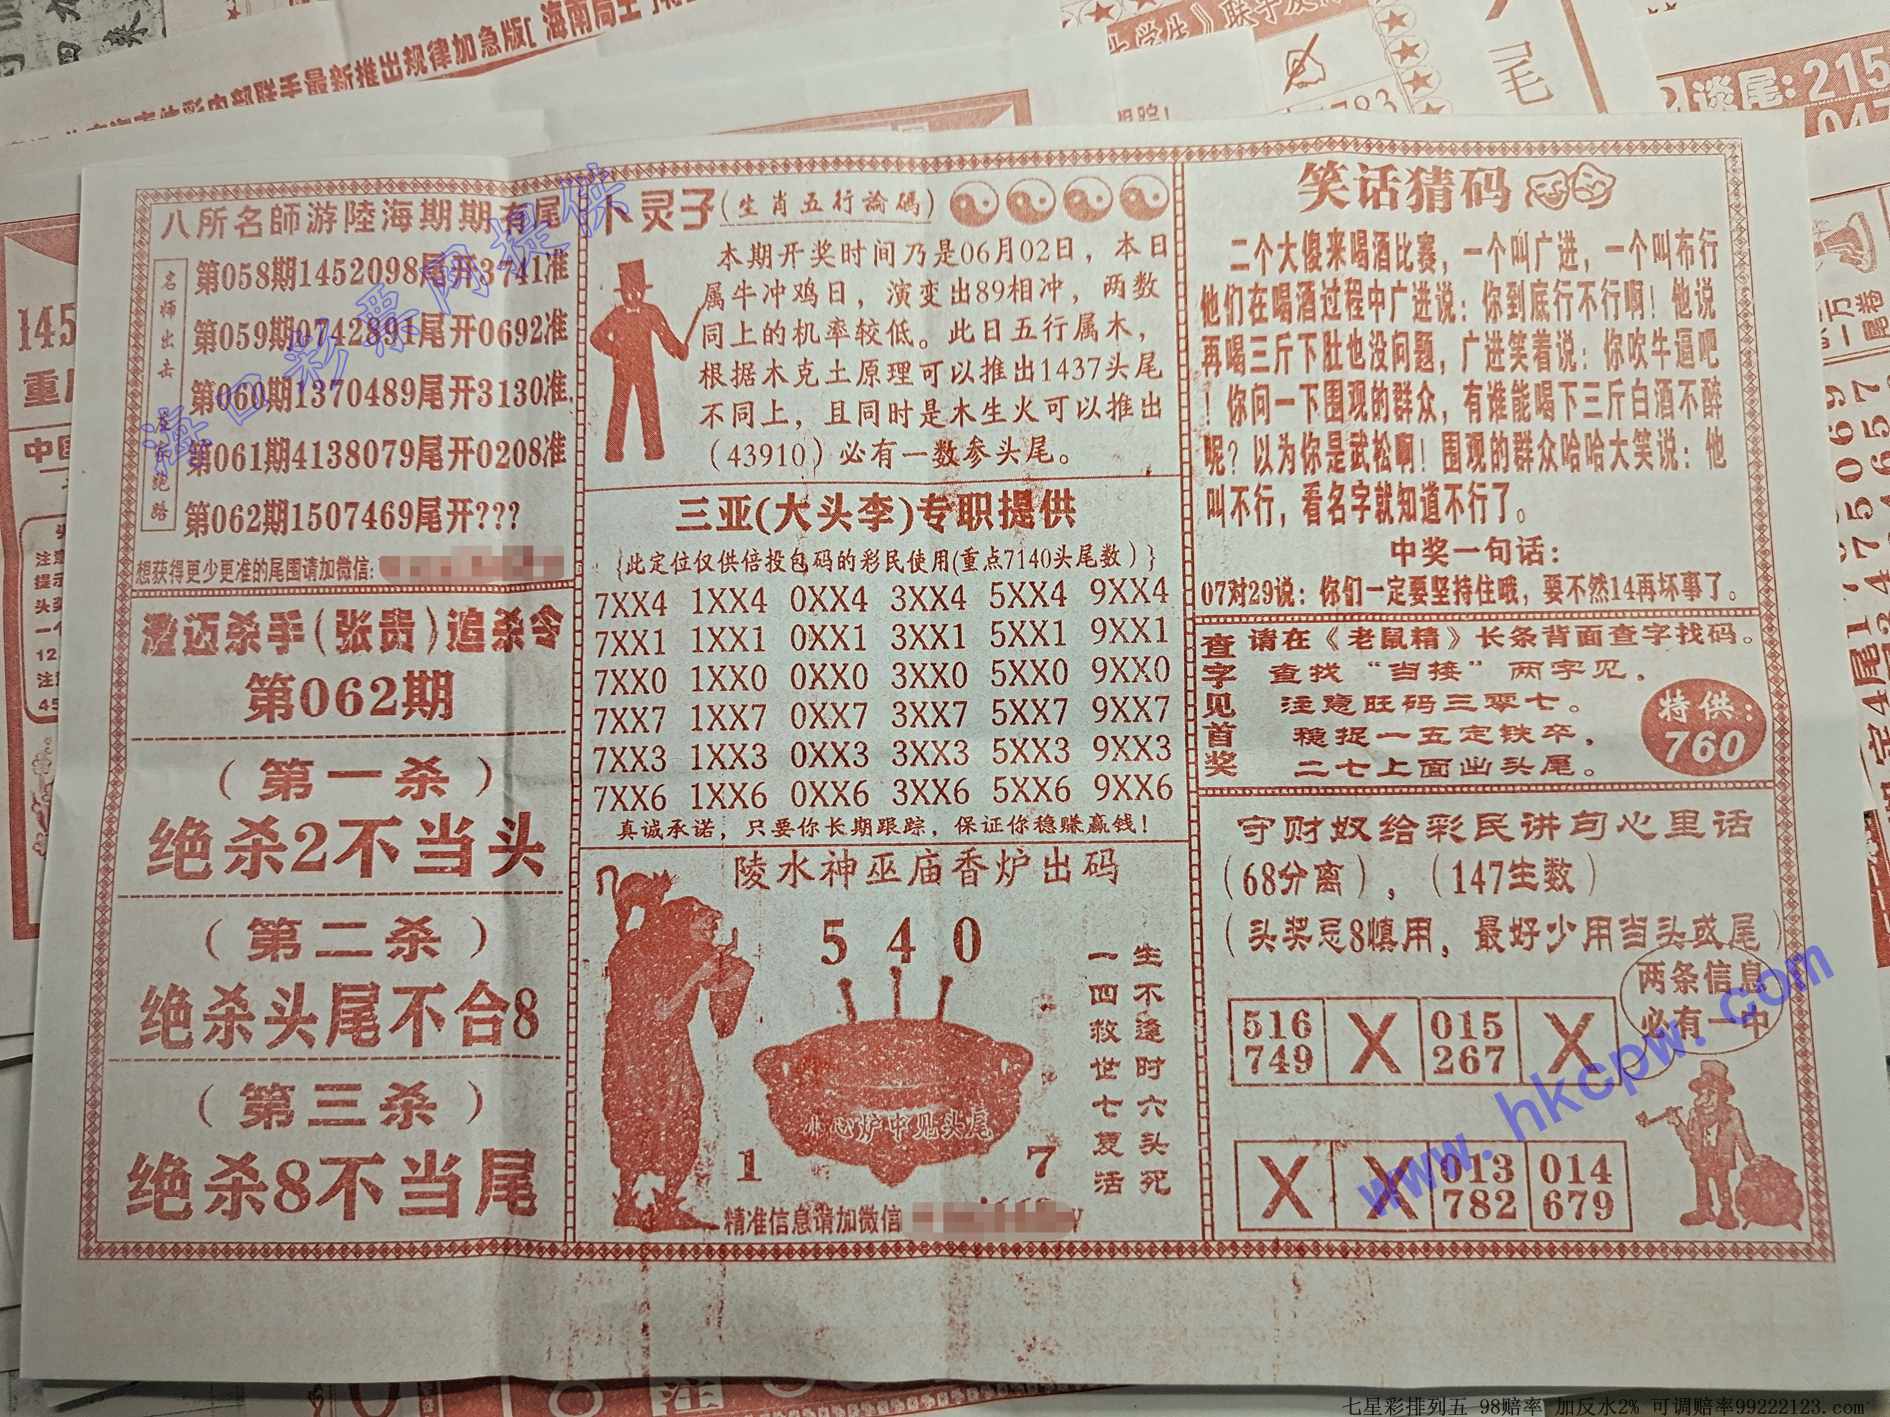 最新推出规律加急版[海南局王
谈尾:215
八所名師游陸海期期有尾
名师出击
第058期1452098尾开3741准
第059期0742891尾开0692准
第060期1370489尾开3130准
第061期4138079尾开0208准
第062期1507469尾开???
想获得更少更准的尾围请加微信:
澄迈杀手(张贵)追杀令
第062期
(第一杀)
绝杀2不当头
(第二杀)
绝杀头尾不合8
(第三杀)
绝杀8不当尾
卜灵子(生肖五行論碼)
本期开奖时间乃是06月02日，本日
属牛冲鸡日，演变出89相冲，两数
同上的机率较低。此日五行属木，
根据木克土原理可以推出1437头尾
不同上，且同时是木生火可以推出
(43910)必有一数参头尾。
三亚(大头李)专职提供
{此定位仅供倍投包码的彩民使用(重点7140头尾数)}
7XX4 1XX4 0XX4 3XX4 5XX4 9XX4
7XX1 1XX1 0XX1 3XX1 5XX1 9XX1
7XX0 1XX0 0XX0 3XX0 5XX0 9XX0
7XX7 1XX7 0XX7 3XX7 5XX7 9XX7
7XX3 1XX3 0XX3 3XX3 5XX3 9XX3
7XX6 1XX6 0XX6 3XX6 5XX6 9XX6
真诚承诺，只要你长期跟踪，保证你稳赚赢钱！
陵水神巫庙香炉出码
5 4 0
小心炉中见头尾
1 7
生不逢时六头死
一四救世七复活
精准信息请加微信
笑话猜码
二个大傻来喝酒比赛，一个叫广进，一个叫布行
他们在喝酒过程中广进说：你到底行不行啊！他说
再喝三斤下肚也没问题，广进笑着说：你吹牛逼吧
！你问一下围观的群众，有谁能喝下三斤白酒不醉
呢？以为你是武松啊！围观的群众哈哈大笑说：他
叫不行，看名字就知道不行了。
中奖一句话：
07对29说：你们一定要坚持住哦，要不然14再坏事了。
查字见首奖
请在《老鼠精》长条背面查字找码。
查找“当接”两字见，
注意旺码三零七。
稳捉一五定铁卒，
二七上面出头尾。
特供：
760
守财奴给彩民讲句心里话
(68分离)，(147生数)
(头奖忌8慎用，最好少用当头或尾)
两条信息
必有一中
516 X 015 X
749 267
X X 013 014
782 679
海口彩票网提供
www.hkcpw.com
七星彩排列五 98赔率 加反水2% 可调赔率99222123.com